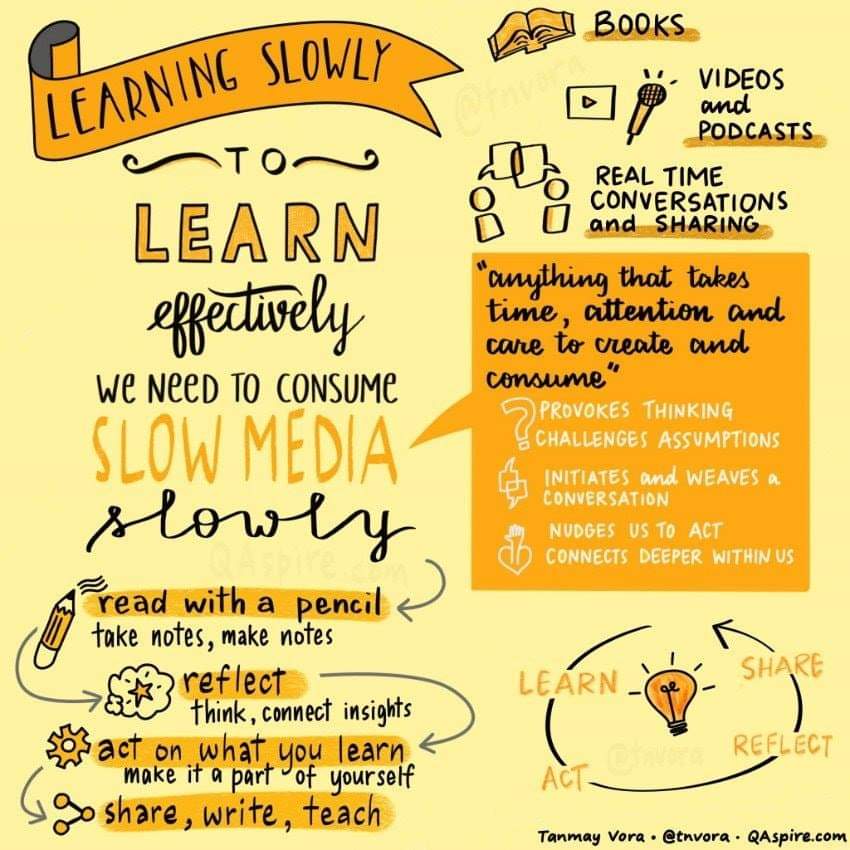 LEARNING SLOWLY
TO
LEARN
effectively
WE NEED TO CONSUME
SLOW MEDIA
slowly
read with a pencil
take notes, make notes
reflect
think, connect insights
act on what you learn
make it a part of yourself
share, write, teach
BOOKS
VIDEOS
and
PODCASTS
REAL TIME
CONVERSATIONS
and SHARING
"anything that takes
time, attention and
care to create and
consume"
PROVOKES THINKING
CHALLENGES ASSUMPTIONS
INITIATES and WEAVES a
CONVERSATION
NUDGES US TO ACT
CONNECTS DEEPER WITHIN US
LEARN
SHARE
REFLECT
ACT
@tnvora
QAspire.com
@tnvora
Tanmay Vora • @tnvora • QAspire.com